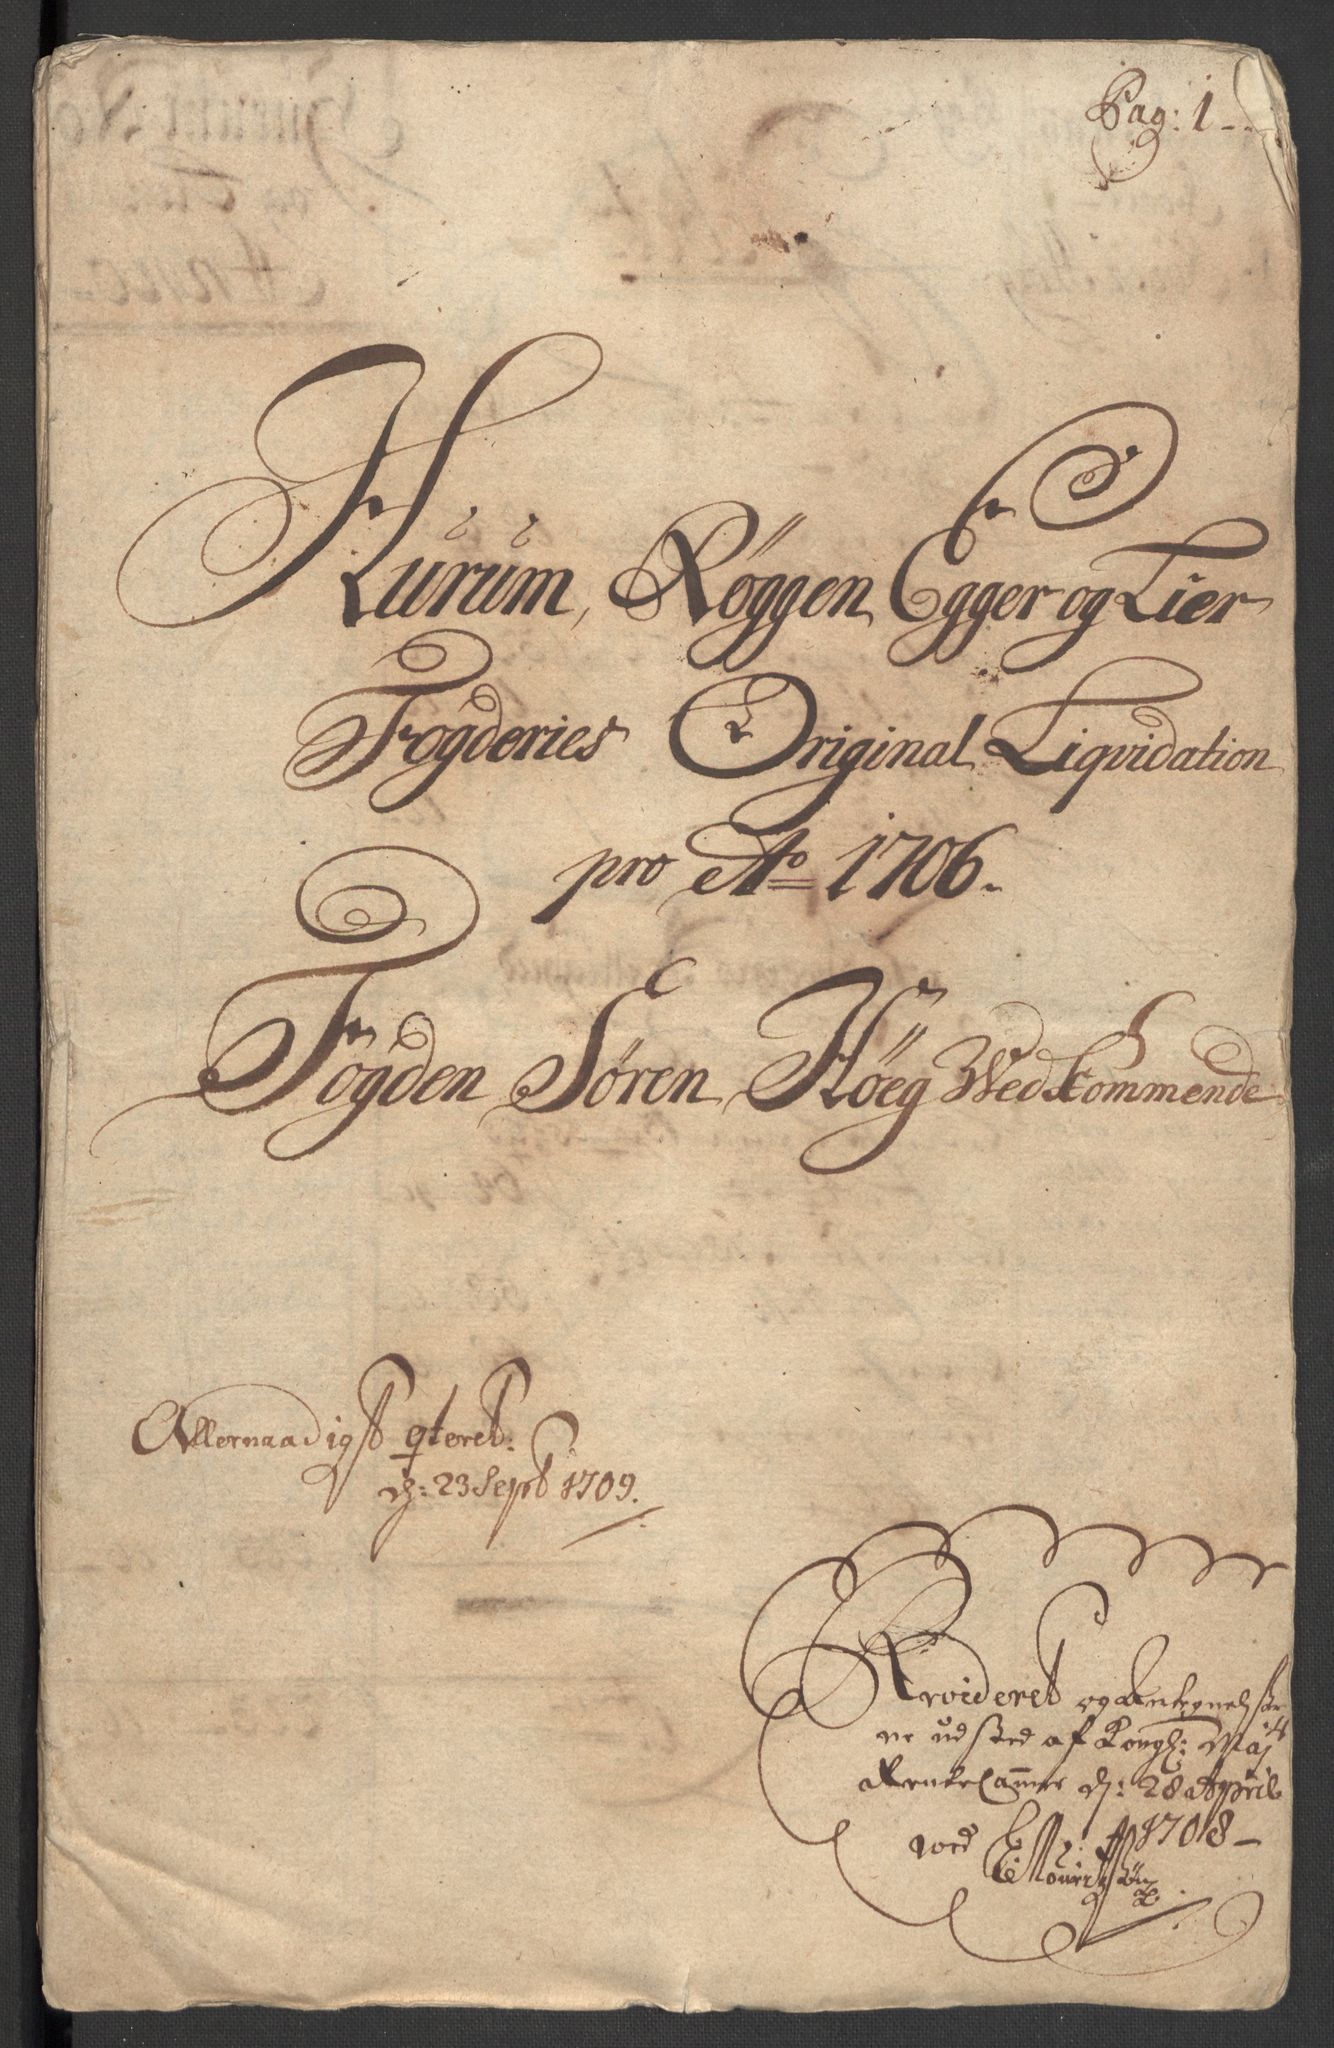 Pag: 1
Hurum, Røggen Egger og Lier
Fogderies Original Liqvidation
pro Ao 1706.
Fogden Søren Høeg Wedkommende
Allernaadigst qteret.
d: 23 Sept 1709.
Rvideret og Antegnelser
ne udsted af Kongl: Maj
Rentecammer d: 28 April
1708
ved